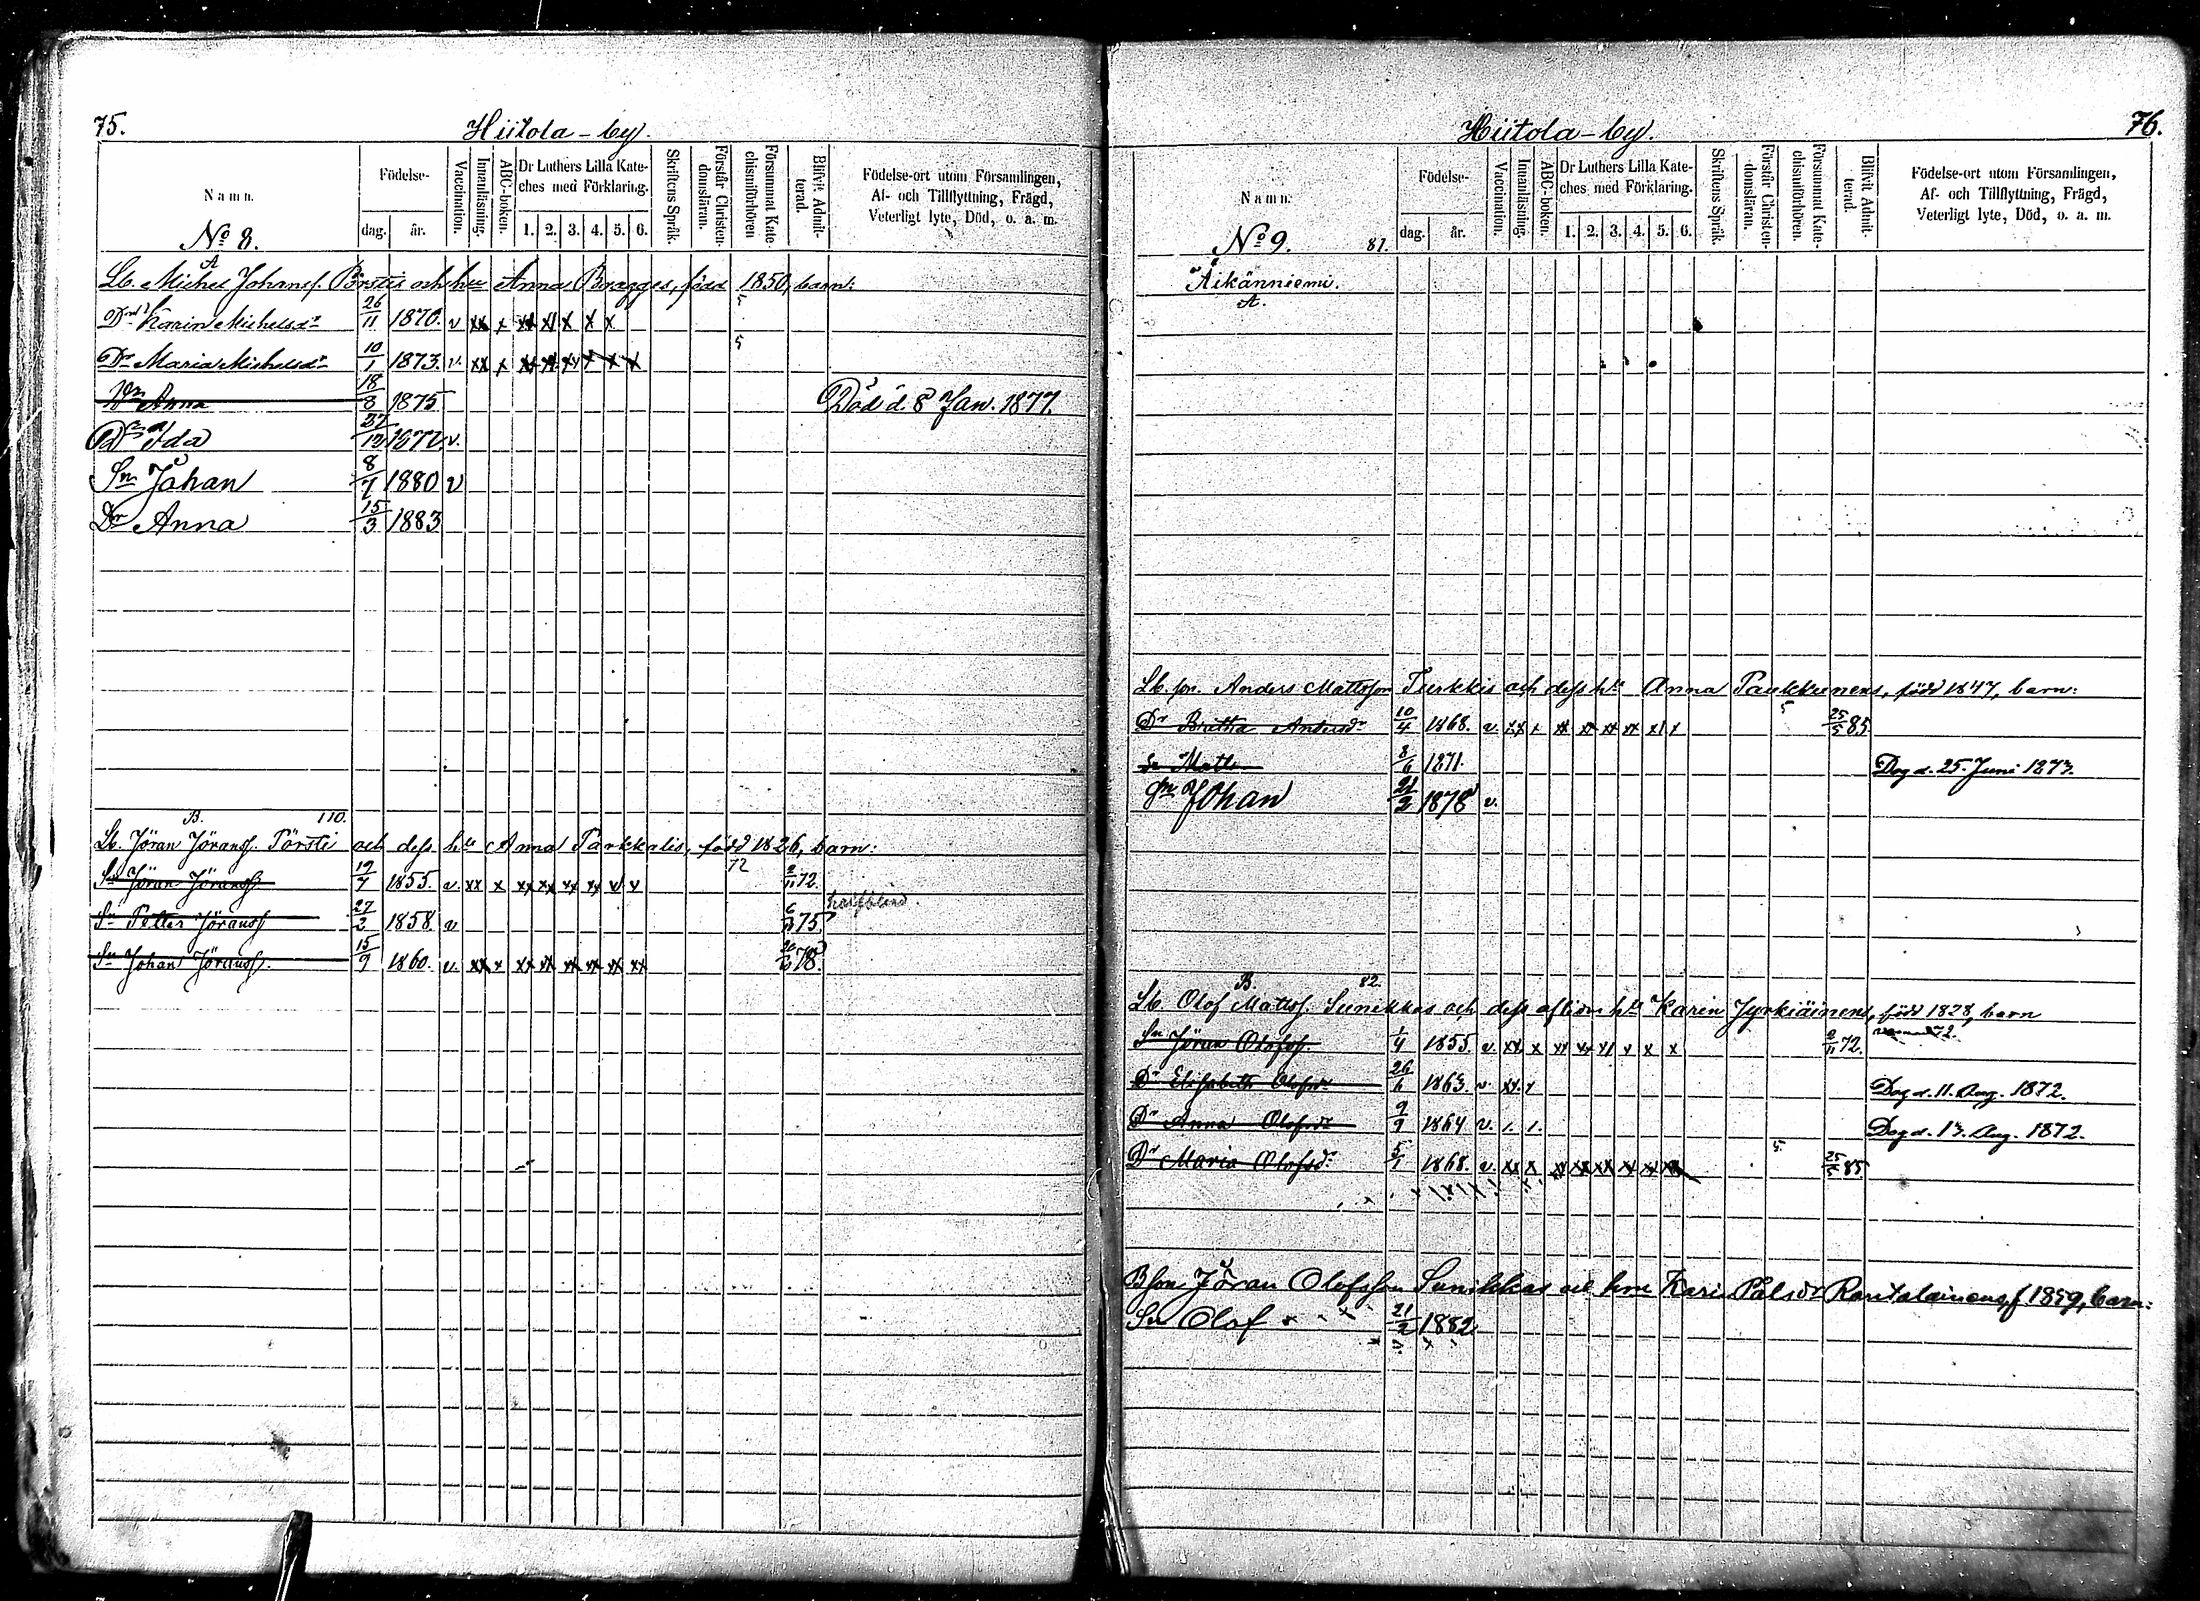 75.
Hiitola - by.
Namn.
Födelse-
dag.
år.
Vaccination.
Innanläsning.
ABC-boken.
Dr Luthers Lilla Kate-
ches med Förklaring.
1. 2. 3. 4. 5. 6.
Skriftens Språk.
Förstår Christen-
domsläran.
Försummat Kate-
chismiförhören
Blifvit Admit-
terad.
Födelse-ort utom Församlingen,
Af- och Tillflyttning, Frägd,
Veterligt lyte, Död, o. a. m.
No 8.
A
Lb. Michel Johansf. och hu Anna född 1850, barn:
Dr Karin Michelsdr 26/11 1870. v xx x xx xx x x x 5
Dr Maria Michelsdr 10/1 1873. v. xx x xx xx xx x x x 5
Dr Anna 18/8 1875 Död d. 8 Jan. 1877.
Dr Ida 27/12 1877. v.
Sn Johan 8/7 1880 v
Dr Anna 15/3 1883
B. 110.
Lb. Jöran Jöransf. Pörsti och dess hu Anna Parkkalis, född 1826, barn:
Sn Jöran Jöransf 1855. v. xx x xx xx xx xx x x 72 2/11 72.
Sn Petter Jöransf 27/2 1858. v 75 halfblind.
Sn Johan Jöransf. 15/9 1860. v. xx x xx xx xx xx xx xx 78.
76.
Hiitola - by.
Namn.
Födelse-
dag.
år.
Vaccination.
Innanläsning.
ABC-boken.
Dr Luthers Lilla Kate-
ches med Förklaring.
1. 2. 3. 4. 5. 6.
Skriftens Språk.
Förstår Christen-
domsläran.
Försummat Kate-
chismiförhören.
Blifvit Admit-
terad.
Födelse-ort utom Församlingen,
Af- och Tillflyttning, Frägd,
Veterligt lyte, Död, o. a. m.
No 9. 81.
Äikänniemi.
A.
Lb. son. Anders Mattsson Turkkis och dess hu Anna Paukkunens, född 1847, barn:
Dr Britha Andersdr 10/4 1868. v. xx x xx xx xx xx x x 5 25/5 85
Sn Matts 8/6 1871. Dog d. 25 Juni 1873.
Sn Johan 21/2 1878 v.
B. 82.
Lb. Olof Mattsf. Sunikkas och dess aflidn hu Karin Jyrkiäinens, född 1828, barn
Sn Jöran Olofsf. 1/4 1855. v. xx x xx xx xx x x x 2/11 72. 72.
Dr Elisabeth Olofsdr 26/6 1863. v. xx x Dog d. 11. Aug. 1872.
Dr Anna Olofsdr 9/9 1864 v. 1. 1. Dog d. 13. Aug. 1872.
Dr Maria Olofsdr 5/1 1868. v. xx x xx xx xx xx xx xx 5. 25/5 85.
Bson Jöran Olofsson Sunikkas och hu Karin Pålsdr Rantalainens, f 1859, barn:
Sn Olof 21/2 1882